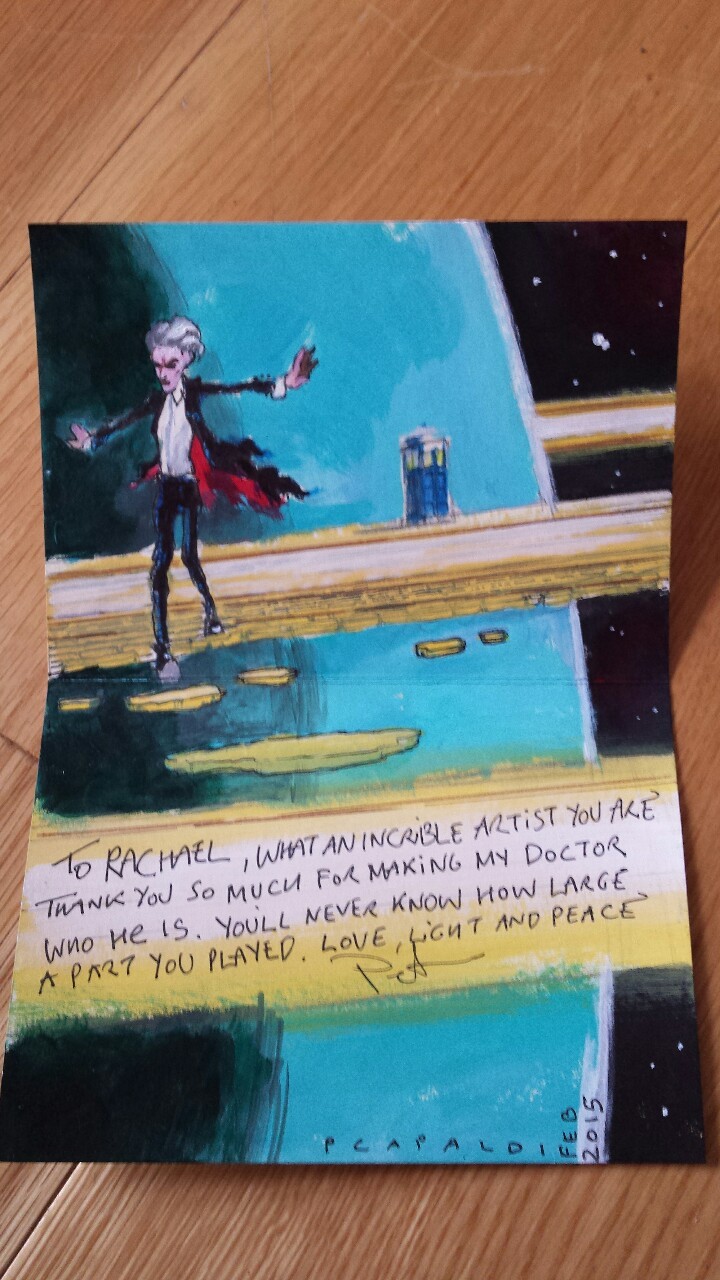 TO RACHAEL, WHAT AN INCRIBLE ARTIST YOU ARE
THANK YOU SO MUCH FOR MAKING MY DOCTOR
WHO HE IS. YOU'LL NEVER KNOW HOW LARGE
A PART YOU PLAYED. LOVE, LIGHT AND PEACE
PCAPALDI
FEB
2015